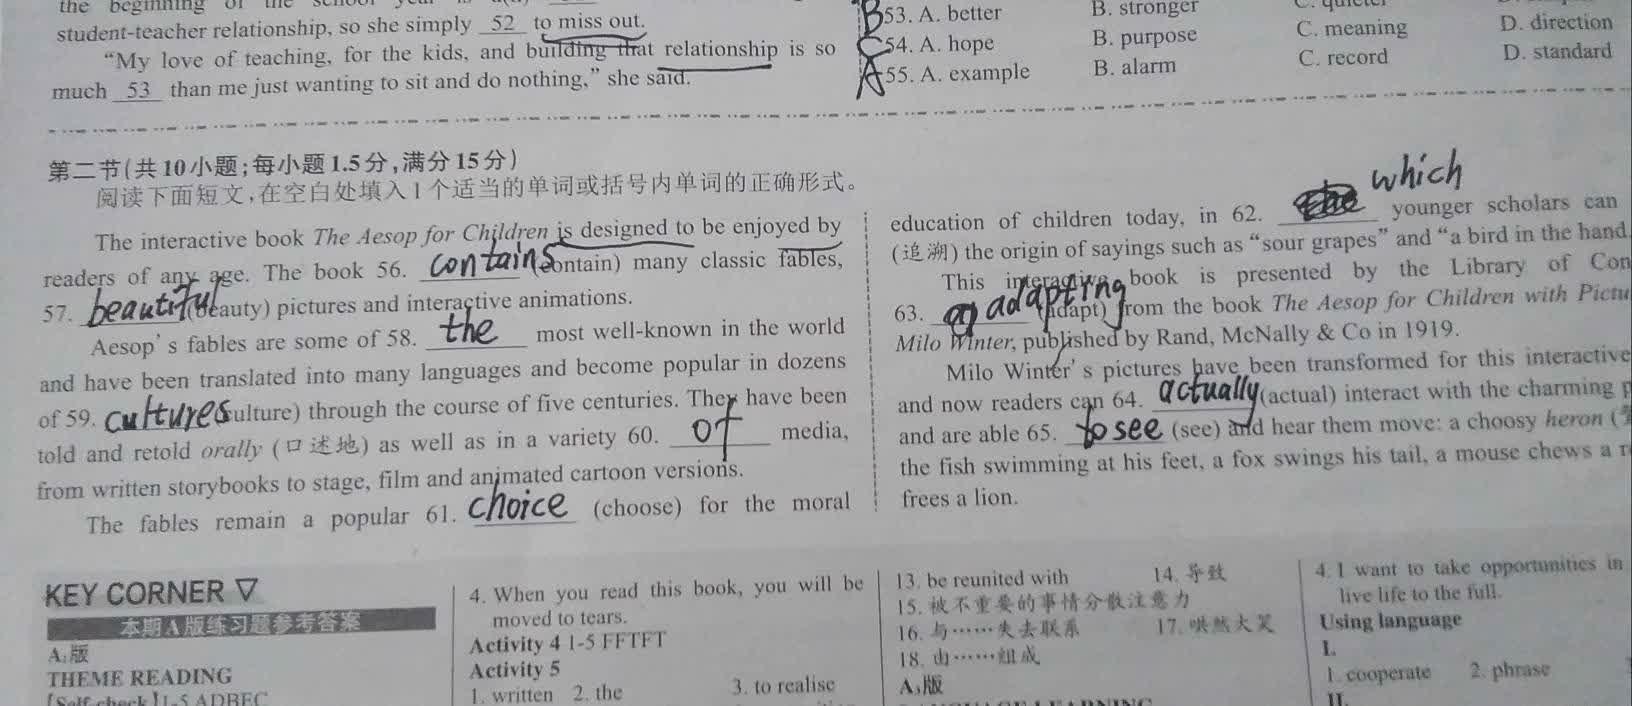 the beginning of the school year
student-teacher relationship, so she simply 52 to miss out.
"My love of teaching, for the kids, and building that relationship is so
much 53 than me just wanting to sit and do nothing," she said.
B 53. A. better B. stronger C. quieter
C 54. A. hope B. purpose C. meaning D. direction
A 55. A. example B. alarm C. record D. standard
第二节(共10小题;每小题1.5分,满分15分)
阅读下面短文,在空白处填入1个适当的单词或括号内单词的正确形式。
The interactive book The Aesop for Children is designed to be enjoyed by
readers of any age. The book 56. contains (contain) many classic fables,
57. beautiful (beauty) pictures and interactive animations.
Aesop's fables are some of 58. the most well-known in the world
and have been translated into many languages and become popular in dozens
of 59. cultures (culture) through the course of five centuries. They have been
told and retold orally (口述地) as well as in a variety 60. of media,
from written storybooks to stage, film and animated cartoon versions.
The fables remain a popular 61. choice (choose) for the moral
education of children today, in 62. which younger scholars can
(追溯) the origin of sayings such as "sour grapes" and "a bird in the hand.
This interactive book is presented by the Library of Con
63. adapting (adapt) from the book The Aesop for Children with Pictu
Milo Winter, published by Rand, McNally & Co in 1919.
Milo Winter's pictures have been transformed for this interactive
and now readers can 64. actually (actual) interact with the charming p
and are able 65. to see (see) and hear them move: a choosy heron (
the fish swimming at his feet, a fox swings his tail, a mouse chews a r
frees a lion.
KEY CORNER ▽
本期A版练习题参考答案
A₁版
THEME READING
[Self-check] 1-5 ADBEC
4. When you read this book, you will be
moved to tears.
Activity 4 1-5 FFTFT
Activity 5
1. written 2. the 3. to realise
13. be reunited with 14. 导致
15. 被不重要的事情分散注意力
16. 与……失去联系 17. 哄然大笑
18. 由……组成
A₃版
4. I want to take opportunities in
live life to the full.
Using language
I.
1. cooperate 2. phrase
II.